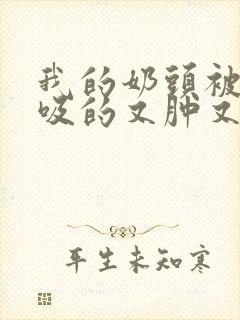 我的奶頭被
吸的又肿又
平生未知寒